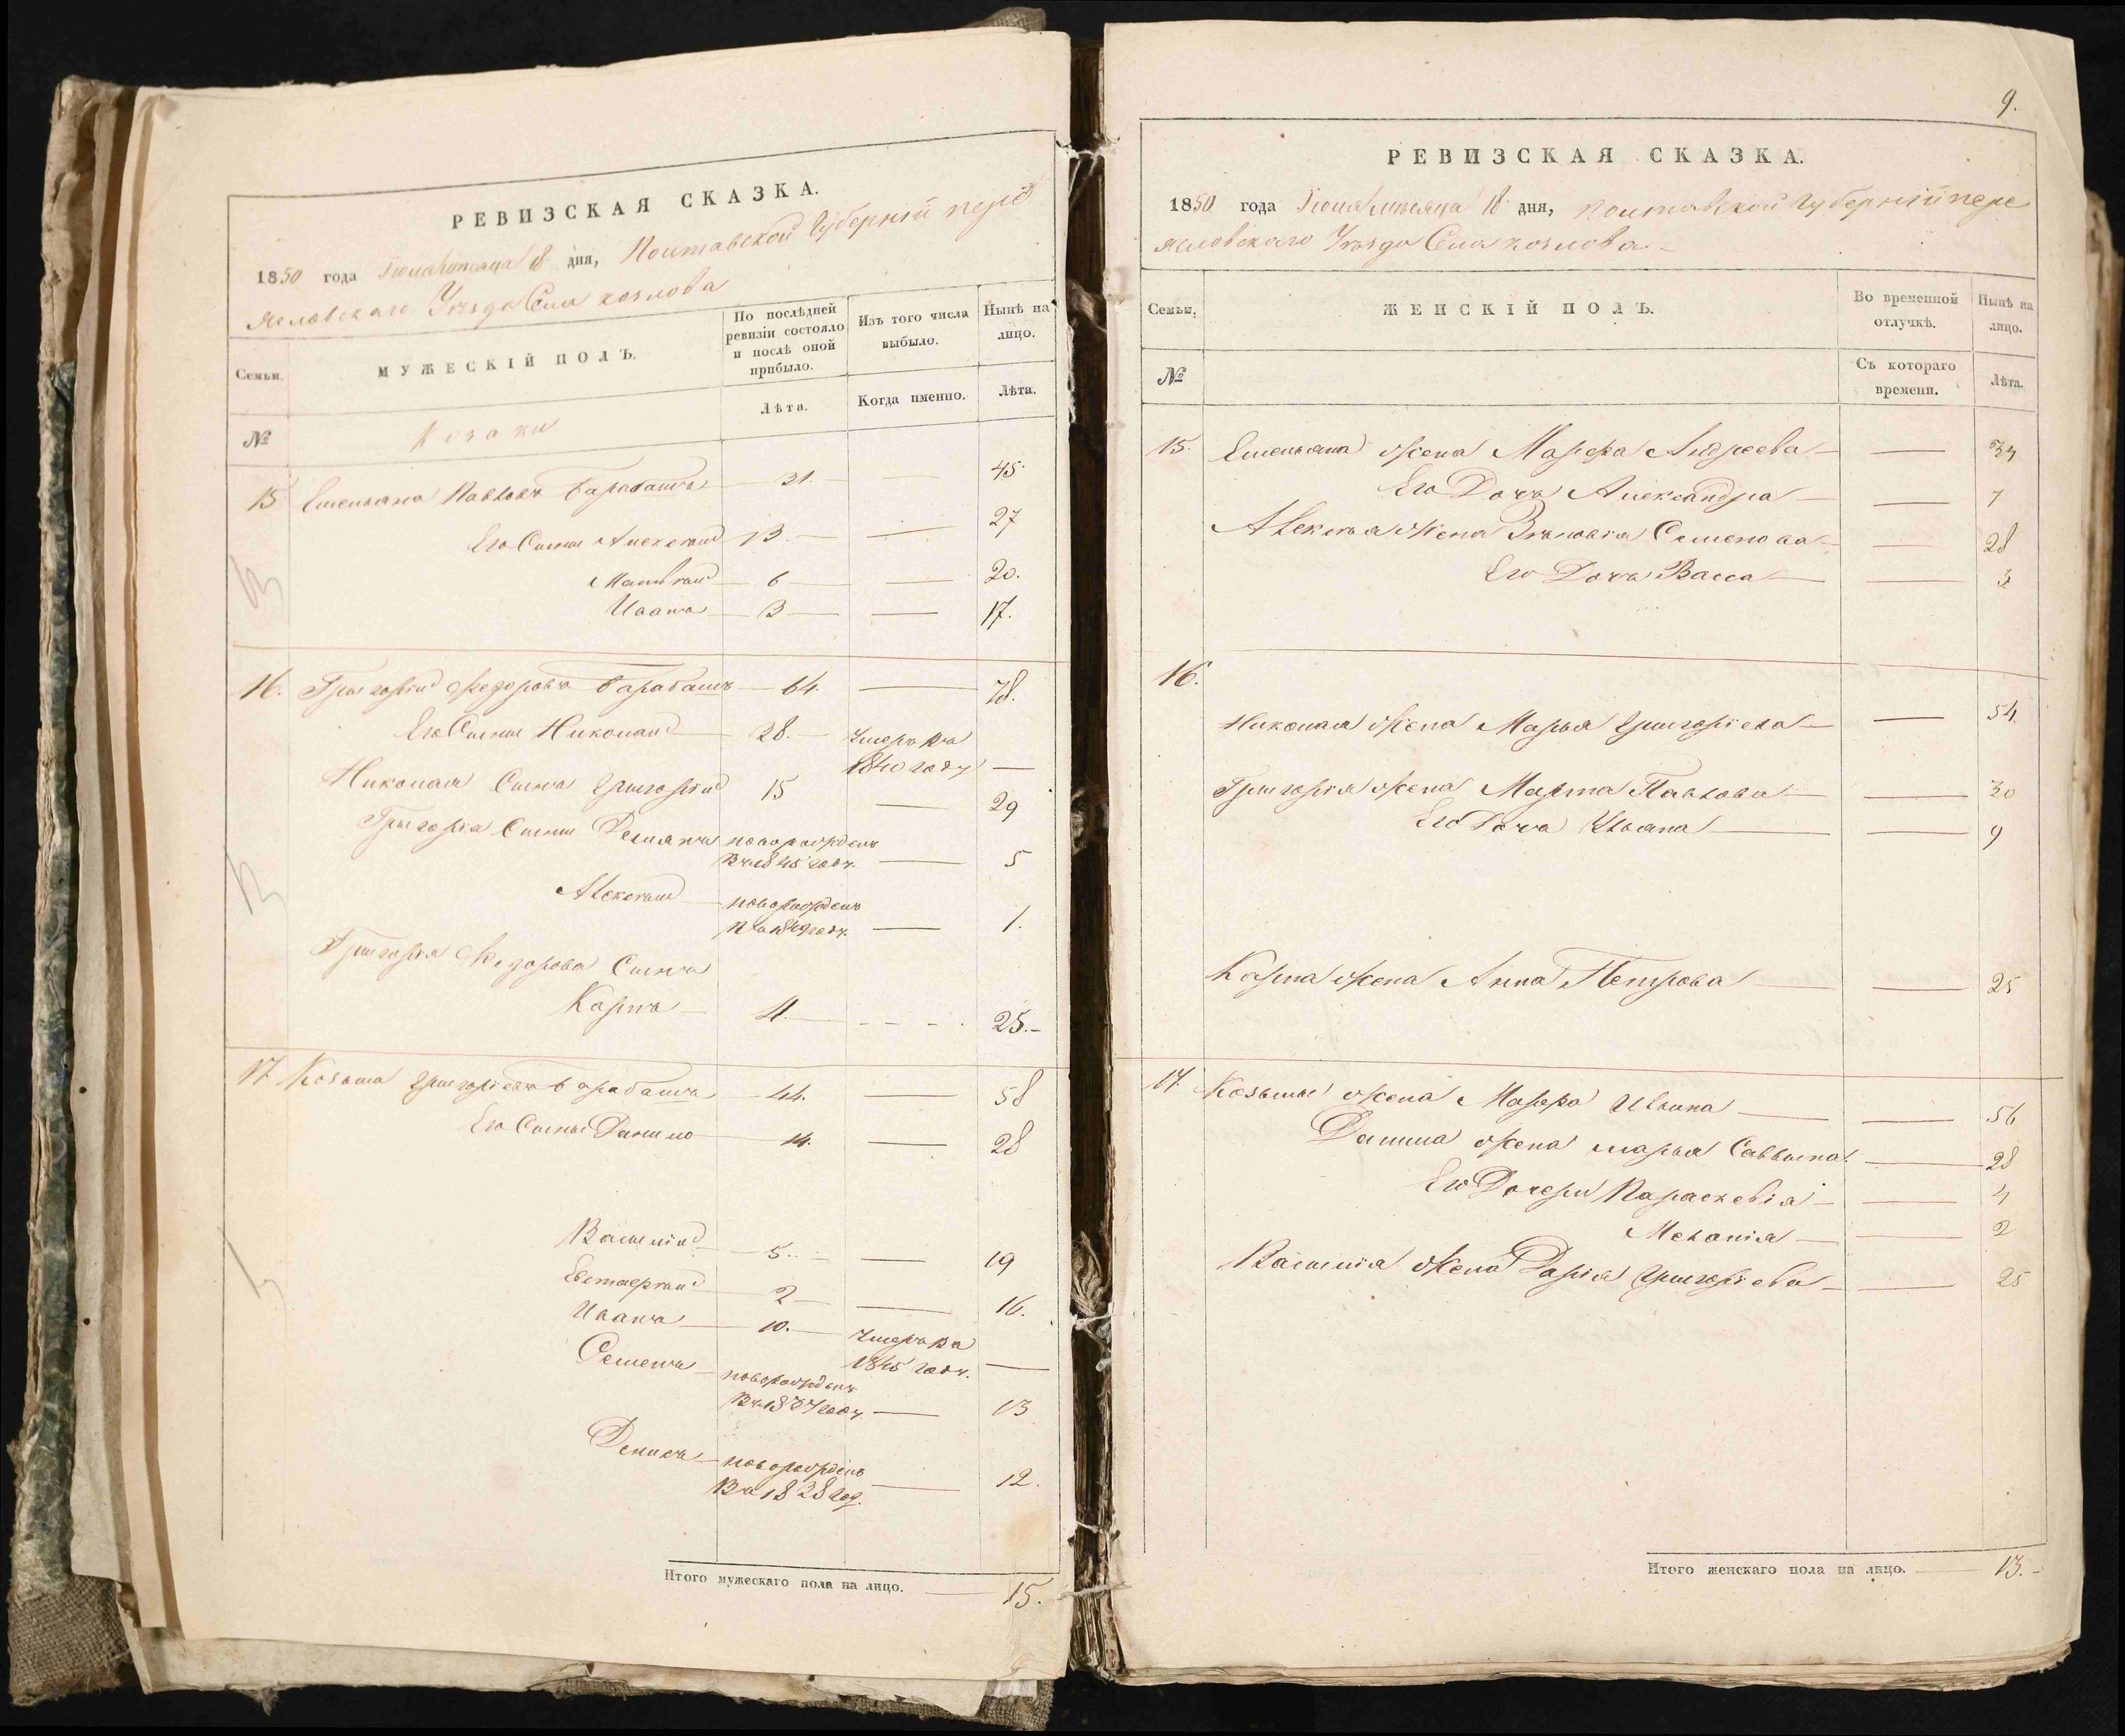 РЕВИЗСКАЯ СКАЗКА.
1850 года Іюня месяца 18 дня, Полтавской Губерніи пере
яславскаго Уезда Села козлова
Семьи.
МУЖЕСКІЙ ПОЛЪ.
По послѣдней
ревизіи состояло
и послѣ оной
прибыло.
Изъ того числа
выбыло.
Нынѣ на
лицо.
№
Лѣта.
Когда именно.
Лѣта.
Козаки
15 Емельянъ Павловъ Барабашъ 31. 45.
Его Сыны Алексѣй 13. 27
Матвѣй 6 20.
Иванъ 3 17.
16. Григорій Федоровъ Барабашъ 64. 78.
Его Сынъ Николай 28. Умеръ Въ
1840 году
Николая Сынъ Григорій 15 29
Григорія Сыны Демянъ новорожденъ
Въ 1845 году. 5
Алексѣй новорожденъ
Въ 1849 году. 1.
Григорія Федорова Сынъ
Карпъ 11. 25.
17 Козьма Григорьевъ Барабашъ 44. 58
Его Сыны Данило 14. 28
Василій 5. 19
Евстафій 2 16.
Иванъ 10. Умеръ Въ
1845 году.
Семенъ новорожденъ
Въ 1837 году. 13
Денисъ новорожденъ
Въ 1838 год. 12.
Итого мужескаго пола на лицо. 15.
9.
РЕВИЗСКАЯ СКАЗКА.
1850 года Іюня месяца 18 дня, Полтавской Губерніи пере
яславскаго Уезда Села козлова
Семьи.
ЖЕНСКІЙ ПОЛЪ.
Во временной
отлучкѣ.
Нынѣ на
лицо.
№
Съ котораго
времени.
Лѣта.
15. Емельяна жена Марфа Андреева 34
Его Дочь Александра 7
Алексѣя жена Зѣновія Семенова 28
Его Дочь Васса 3
16.
Николая жена Марья Григоріева 54.
Григорія жена Марта Павлова 30
Его Дочь Ульяна 9
Карпа жена Анна Петрова 25
17. Козьмы жена Марфа Ильина 56
Данила жена марья Саввына 28
Его Дочери Параскевія 4
Меланія 2
Василія жена Дарія Григоріева 25
Итого женскаго пола на лицо. 13.